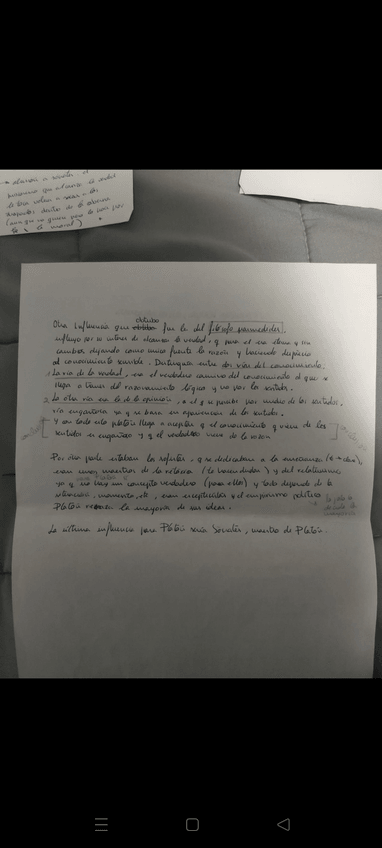 alusión a
volver a
dentro de la caverna
Otra influencia que obtuvo fue la del filósofo parménides,
influyo por su interes de alcanzar la verdad, y para el era eterna y sin
cambios, dejando como única fuente la razón y haciendo desprecio
al conocimiento sensible. Distingue entre dos vías del conocimiento:
1. La vía de la verdad, era el verdadero camino del conocimiento al que se
llega a traves del razonamiento lógico y no por los sentidos.
2. La otra vía era la de la opinión, el q se por medio de los sentidos.
vía engañosa ya q se basa en apariencias de los sentidos.
y con todo esto platón llega a aceptar q el conocimiento q viene de los
sentidos es engañoso y q el verdadero viene de la razón
Por otra parte estaban los sofistas, q se dedicaban a la enseñanza
eran unos maestros de la retórica y del relativismo
ya q no hay un concepto verdadero (para ellos) y todo depende de la
situación, momento, etc, eran escepticistas y el empirismo político
Platón rechaza la mayoria de sus ideas.
La última influencia para Platón sería Sócrates, maestro de Platón.